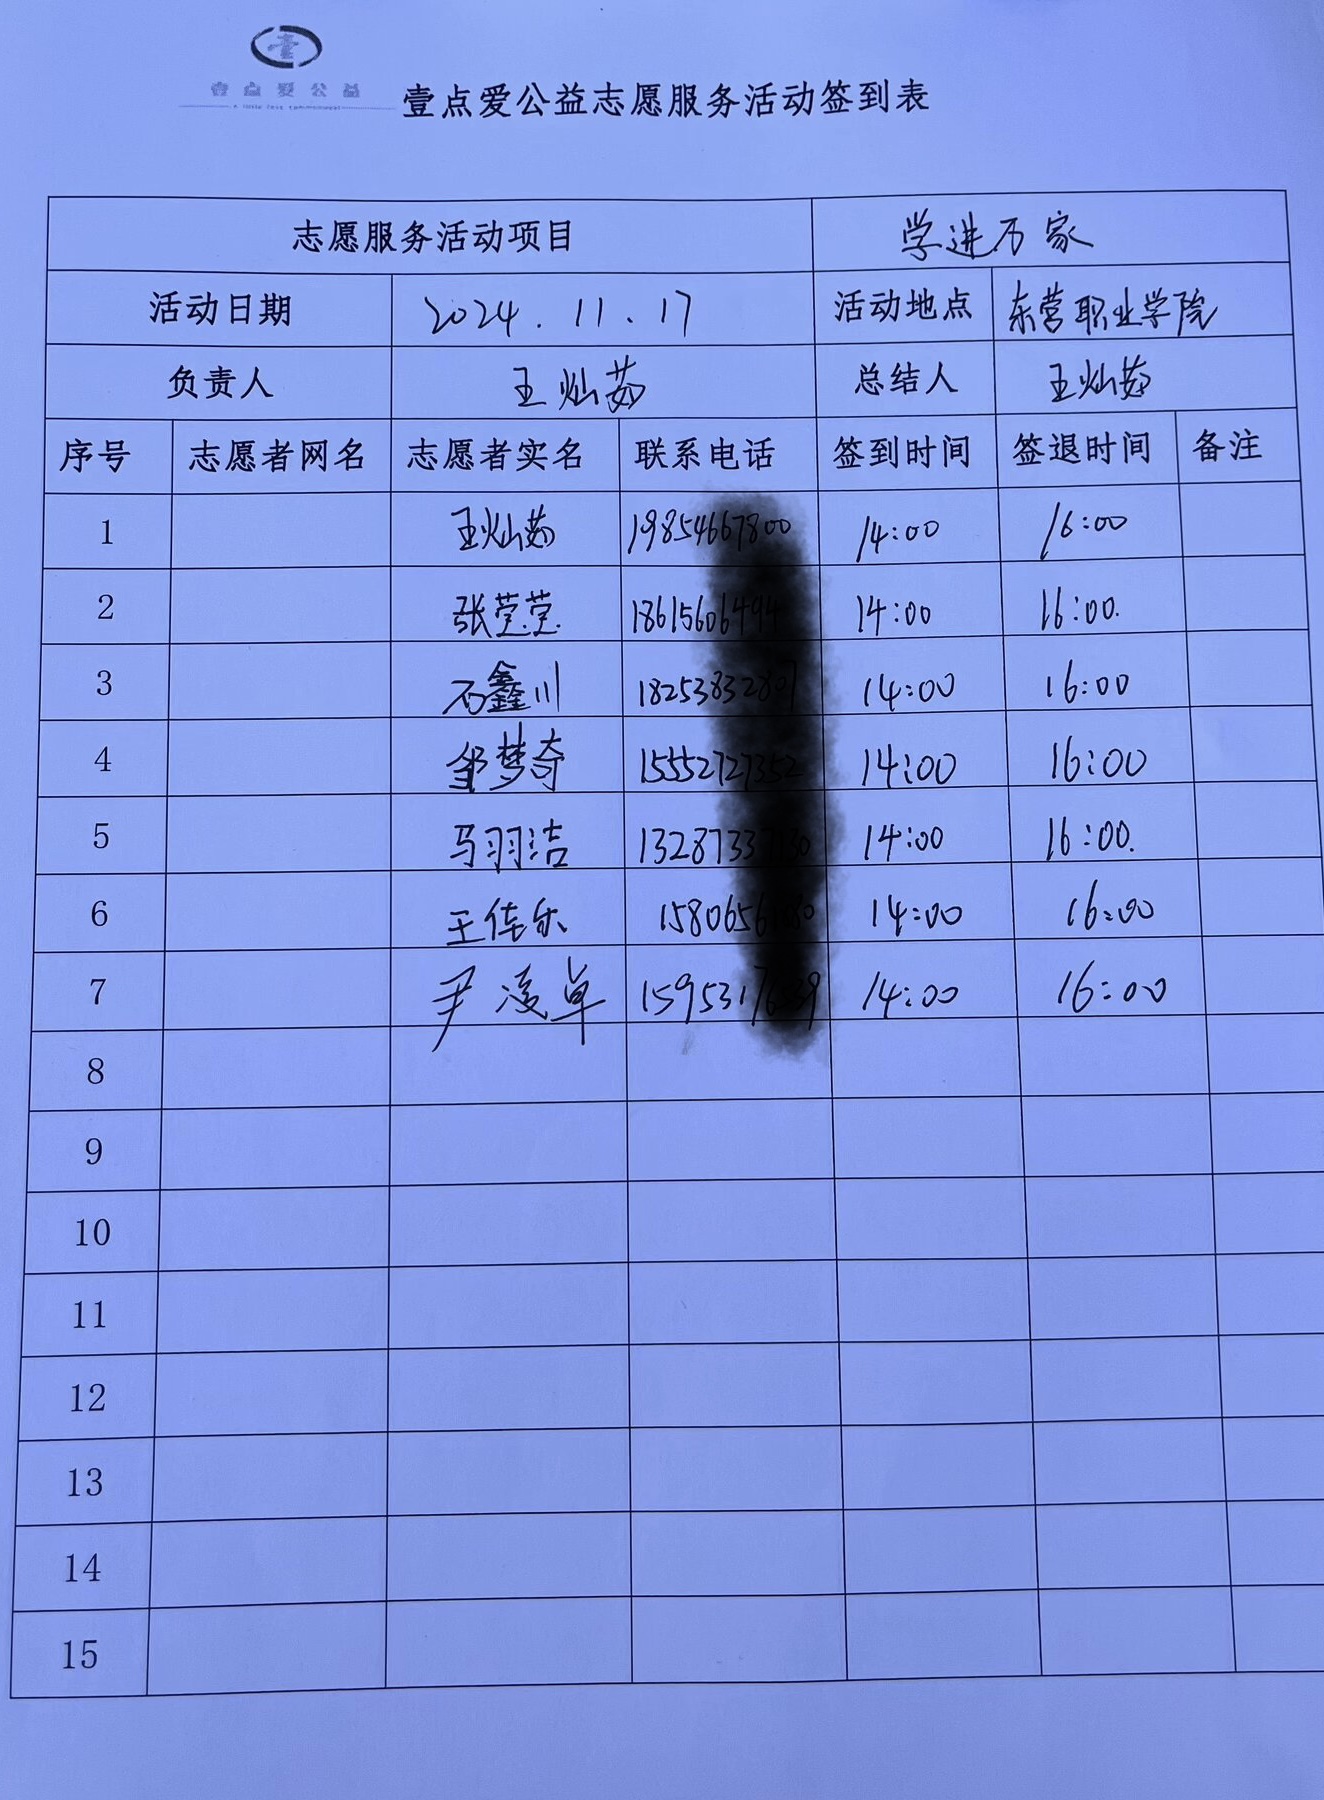 壹点爱公益
壹点爱公益志愿服务活动签到表
志愿服务活动项目 学进万家
活动日期 2024.11.17 活动地点 东营职业学院
负责人 王灿茹 总结人 王灿茹
序号 志愿者网名 志愿者实名 联系电话 签到时间 签退时间 备注
1 王灿茹 14:00 16:00
2 张莹莹 14:00 16:00.
3 石鑫川 14:00 16:00
4 邹梦奇 14:00 16:00
5 马羽洁 14:00 16:00.
6 王佳乐 14:00 16:00
7 尹凌卓 14:00 16:00
8
9
10
11
12
13
14
15